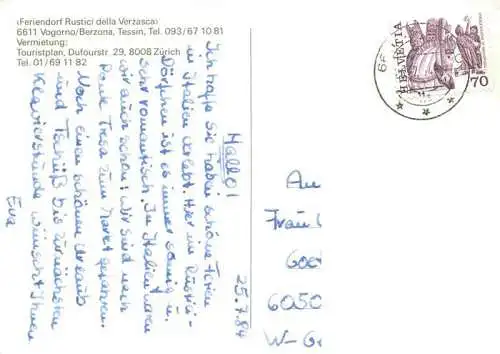 ‹Feriendorf Rustici della Verzasca›
6611 Vogorno/Berzona, Tessin, Tel. 093/67 10 81
Vermietung:
Touristplan, Dufourstr. 29, 8008 Zürich
Tel. 01/69 11 82
HELVETIA
70
25.7.84
Hallo!
Ich hoffe Sie haben schöne Ferien
in Italien verlebt. Hier im Rustici-
Dörfchen ist es immer sonnig u.
sehr romantisch. In Italien waren
wir auch schon: Wir sind nach
Ponte Tresa zum Markt gefahren.
Noch einen schönen Urlaub
und Tschüß bis zur nächsten
Klavierstunde wünscht Ihnen
Eva
An
Frau
6050
W-